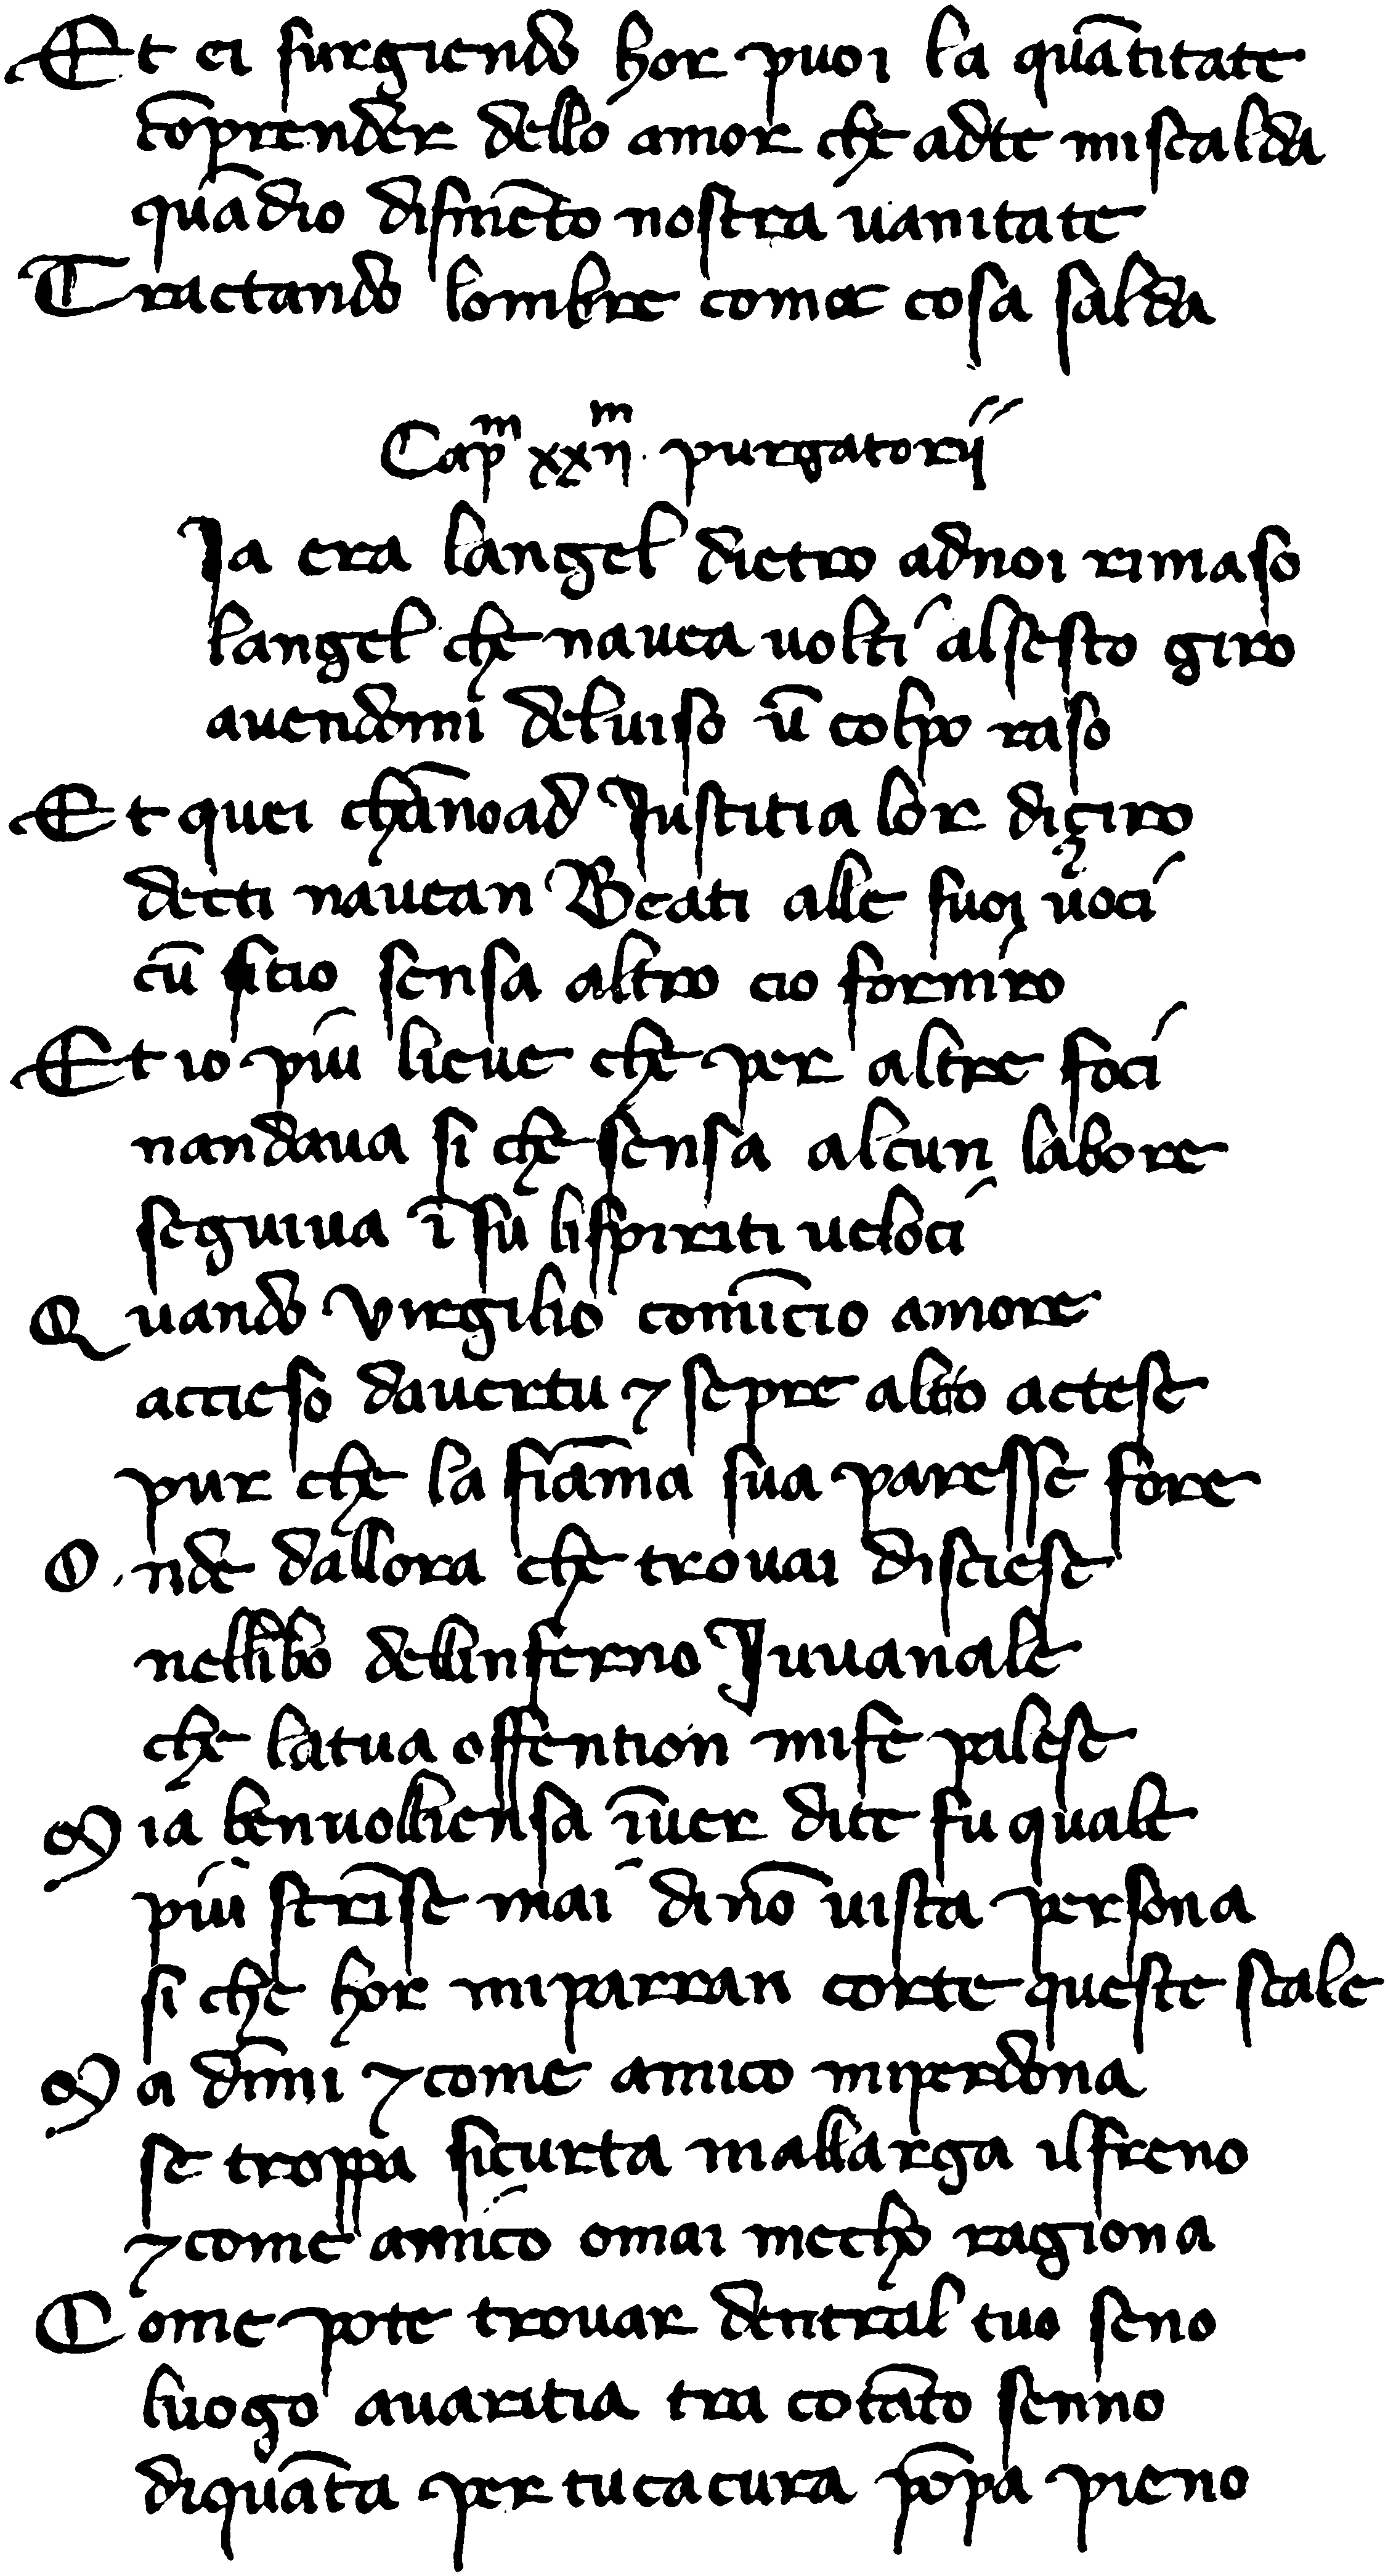 Et ei surgiendo hor puoi la quātitate
cōprender dello amor che adte miscalda
quādio dismēto nostra uanitate
Tractando lombre come cosa salda
Capᵐ xxijᵐ purgatorij
Ia era langel dietro adnoi rimaso
langel che nauea uolti alsesto giro
auendomi deluiso ū colpo raso
Et quei chāno ad Iustitia lor diçiro
decti nauean Beati alle suoi uoci
cū sitio sensa altro cio forniro
Et io piu lieue che per altre foci
nandaua si che sensa alcun labore
seguiua ī su lispiriti ueloci
Quando Virgilio comīcio amore
accieso dauertu ⁊ sepre altro actese
pur che la fiāma sua paresse fore
Onde dallora che trouai disciese
nellibo dellinferno Iuuanale
che latua offention mife palese
Mia benuolliensa īuer dite fu quale
piu strīse mai di nō uista persona
si che hor miparran corte queste scale
Ma dīmi ⁊ come amico miperdona
se troppa sicurta mallarga ilfreno
⁊ come amico omai mecho ragiona
Come pote trouar dentral tuo seno
luogo auaritia tra cotāto senno
diquāta per tuca cura pōpa pieno